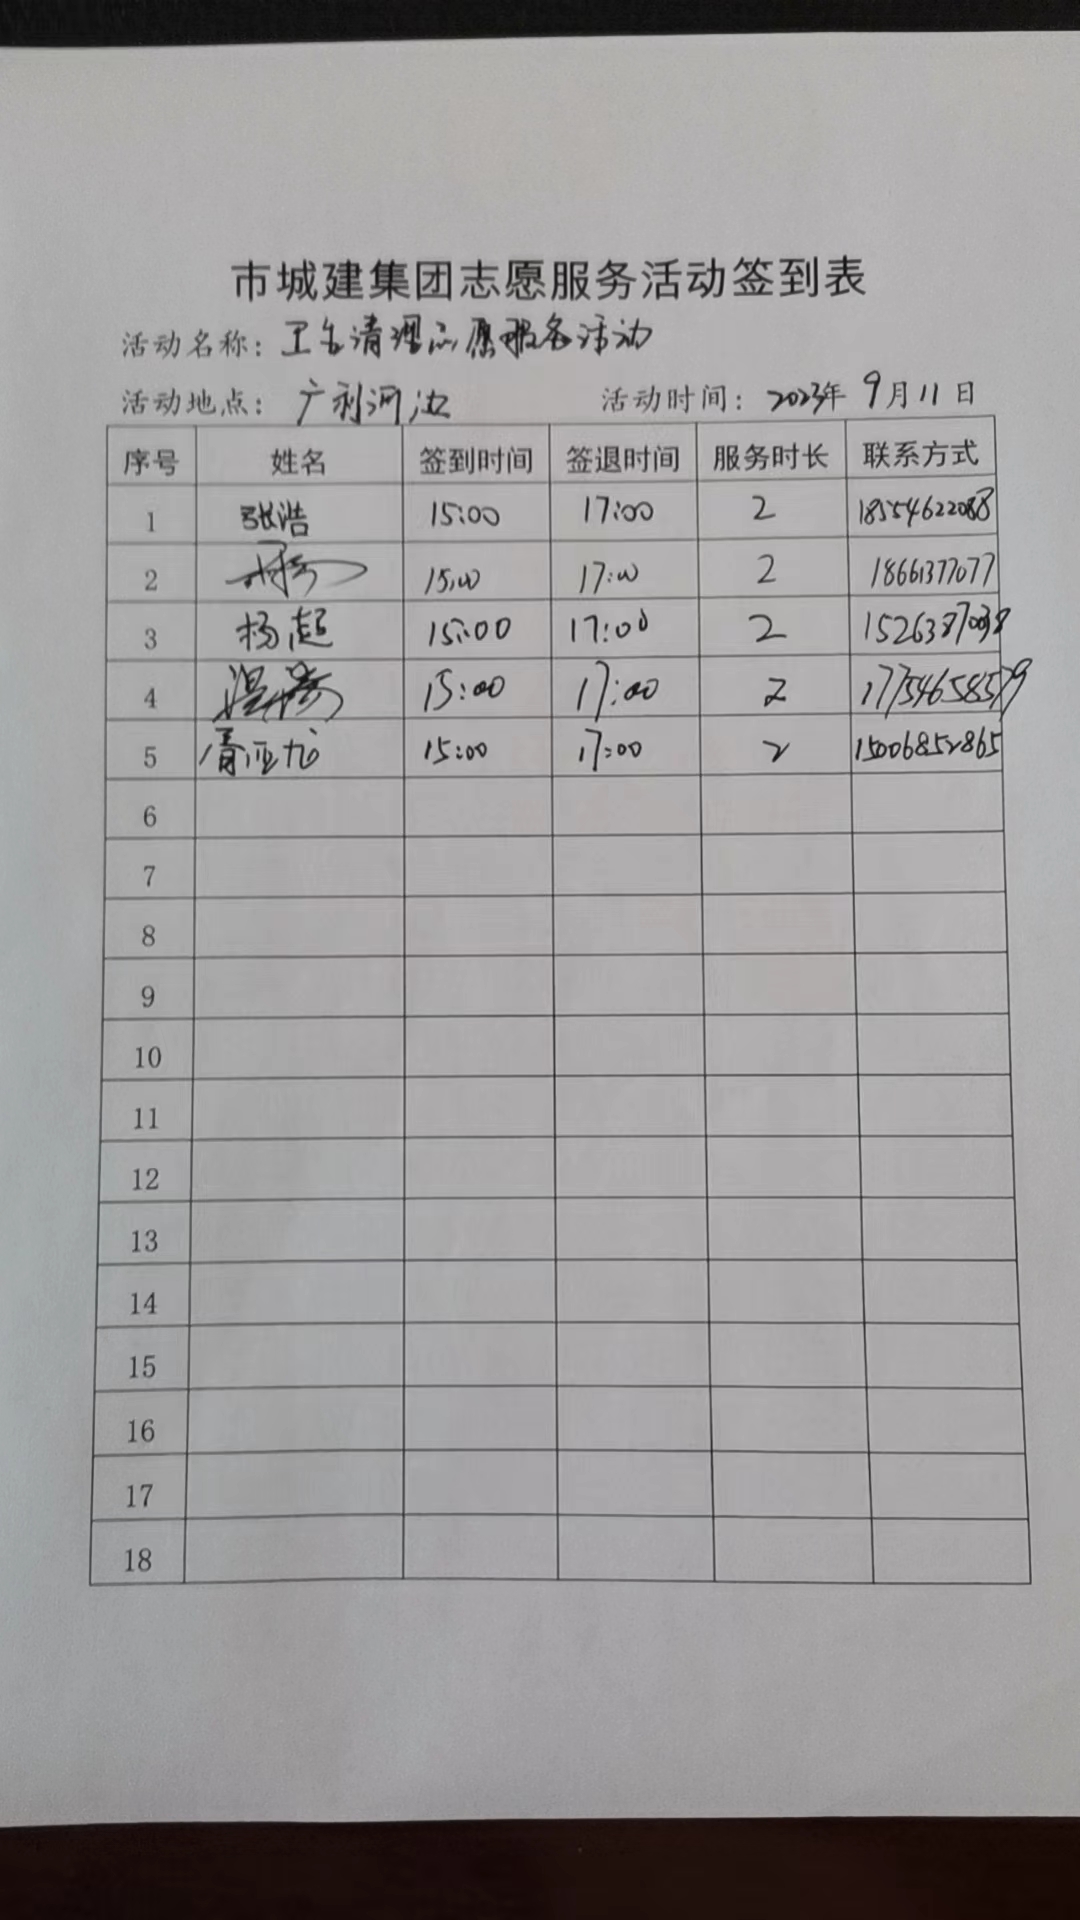 市城建集团志愿服务活动签到表
活动名称：卫生清理志愿服务活动
活动地点：广利河边 活动时间：2023年 9月11日
序号 姓名 签到时间 签退时间 服务时长 联系方式
1 张浩 15:00 17:00 2 18554622088
2 15:00 17:00 2 18661377077
3 杨超 15:00 17:00 2 1526387038
4 15:00 17:00 2 17754658579
5 15:00 17:00 2 15006852865
6
7
8
9
10
11
12
13
14
15
16
17
18